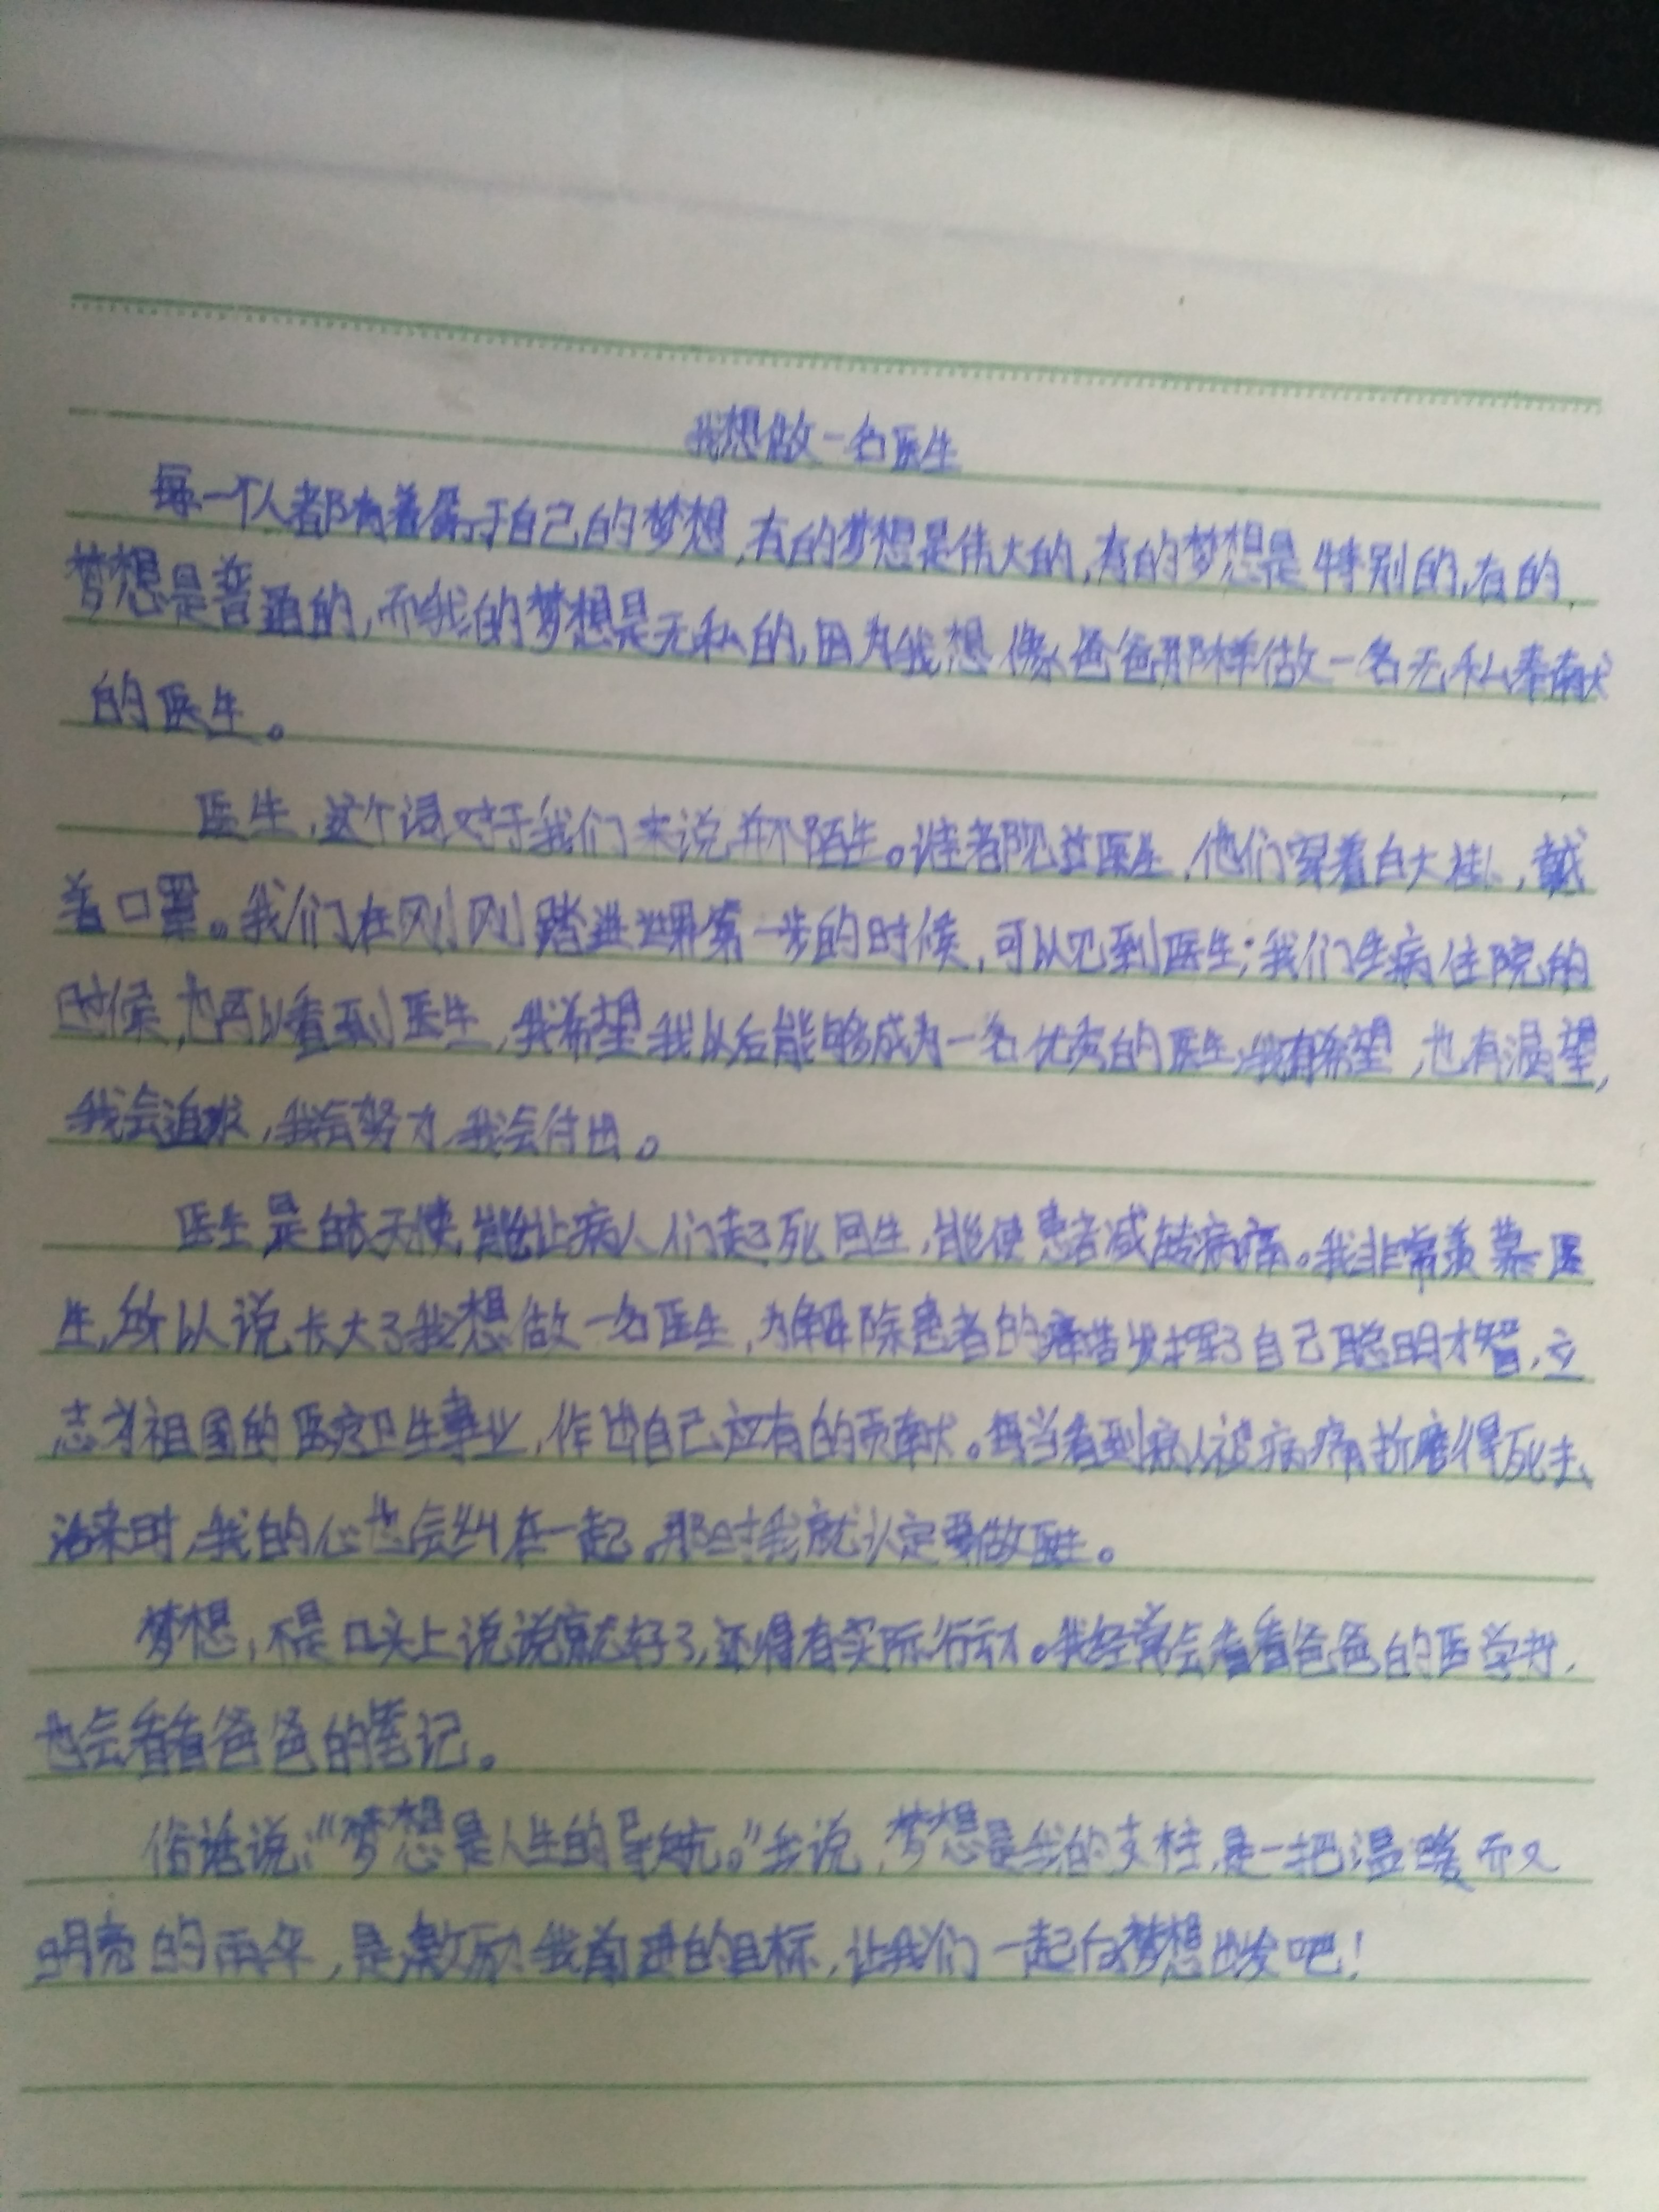 我想做一名医生
每一个人都有着属于自己的梦想,有的梦想是伟大的,有的梦想是特别的,有的
梦想是普通的,而我的梦想是无私的,因为我想像爸爸那样做一名无私奉献
的医生。
医生,这个词对于我们来说并不陌生。谁都见过医生,他们穿着白大褂,戴
着口罩。我们在刚刚踏进世界第一步的时候,可以见到医生;我们生病住院的
时候,也可以看到医生,我希望我以后能够成为一名优秀的医生,我有希望,也有渴望,
我会追求,我会努力,我会付出。
医生是白衣天使,能让病人们起死回生,能使患者减轻病痛。我非常羡慕医
生,所以说长大了我想做一名医生,为解除患者的痛苦发挥了自己聪明才智,立
志为祖国的医疗卫生事业,作出自己应有的贡献。每当看到病人被病痛折磨得死去
活来时,我的心也会纠在一起,那时我就认定要做医生。
梦想,不是口头上说说就好了,还得有实际行动。我经常会看看爸爸的医学书,
也会看看爸爸的笔记。
俗话说:“梦想是人生的导航。”我说,梦想是我的支柱,是一把温暖而又
明亮的雨伞,是激励我前进的目标,让我们一起向梦想出发吧!